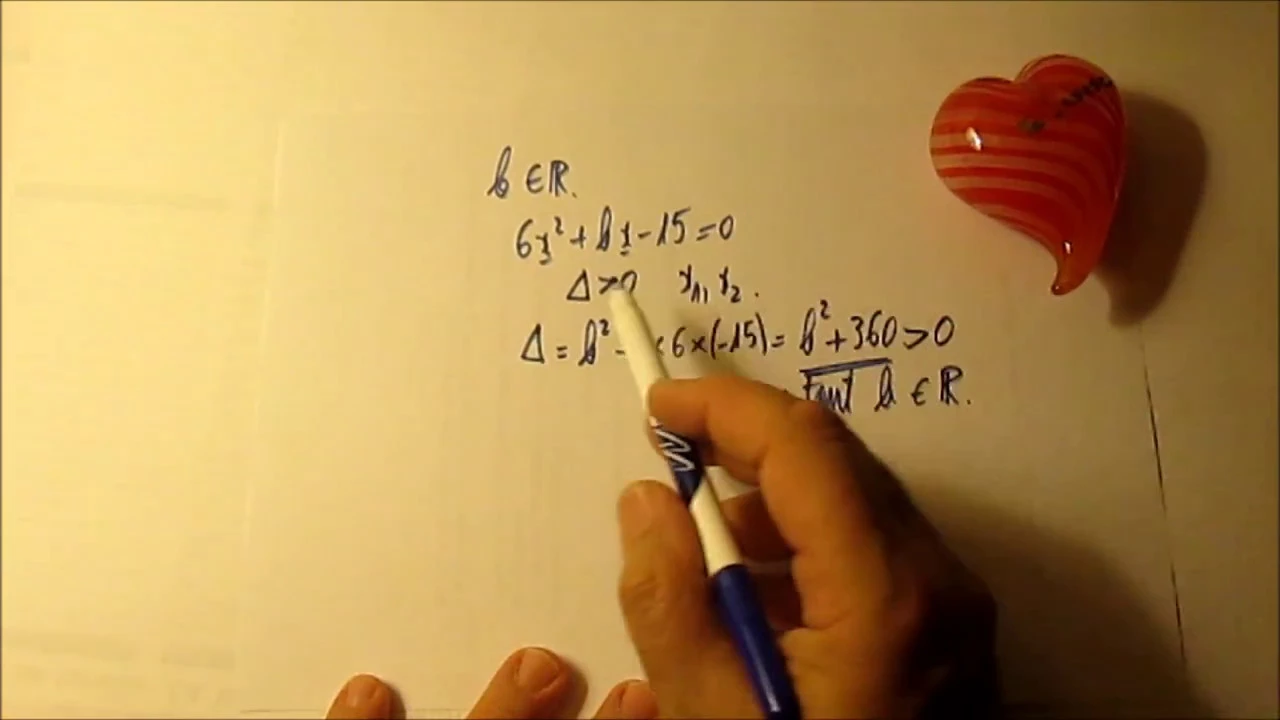 b ∈ ℝ.
6x² + bx - 15 = 0
Δ > 0 x₁, x₂.
Δ = b² - × 6 × (-15) = b² + 360 > 0
tout b ∈ ℝ.